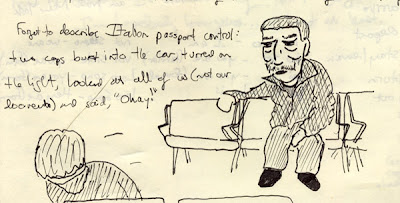 Forgot to describe Italian passport control:
two cops burst into the car, turned on
the light, looked at all of us (not our
documents) and said, "Okay!"